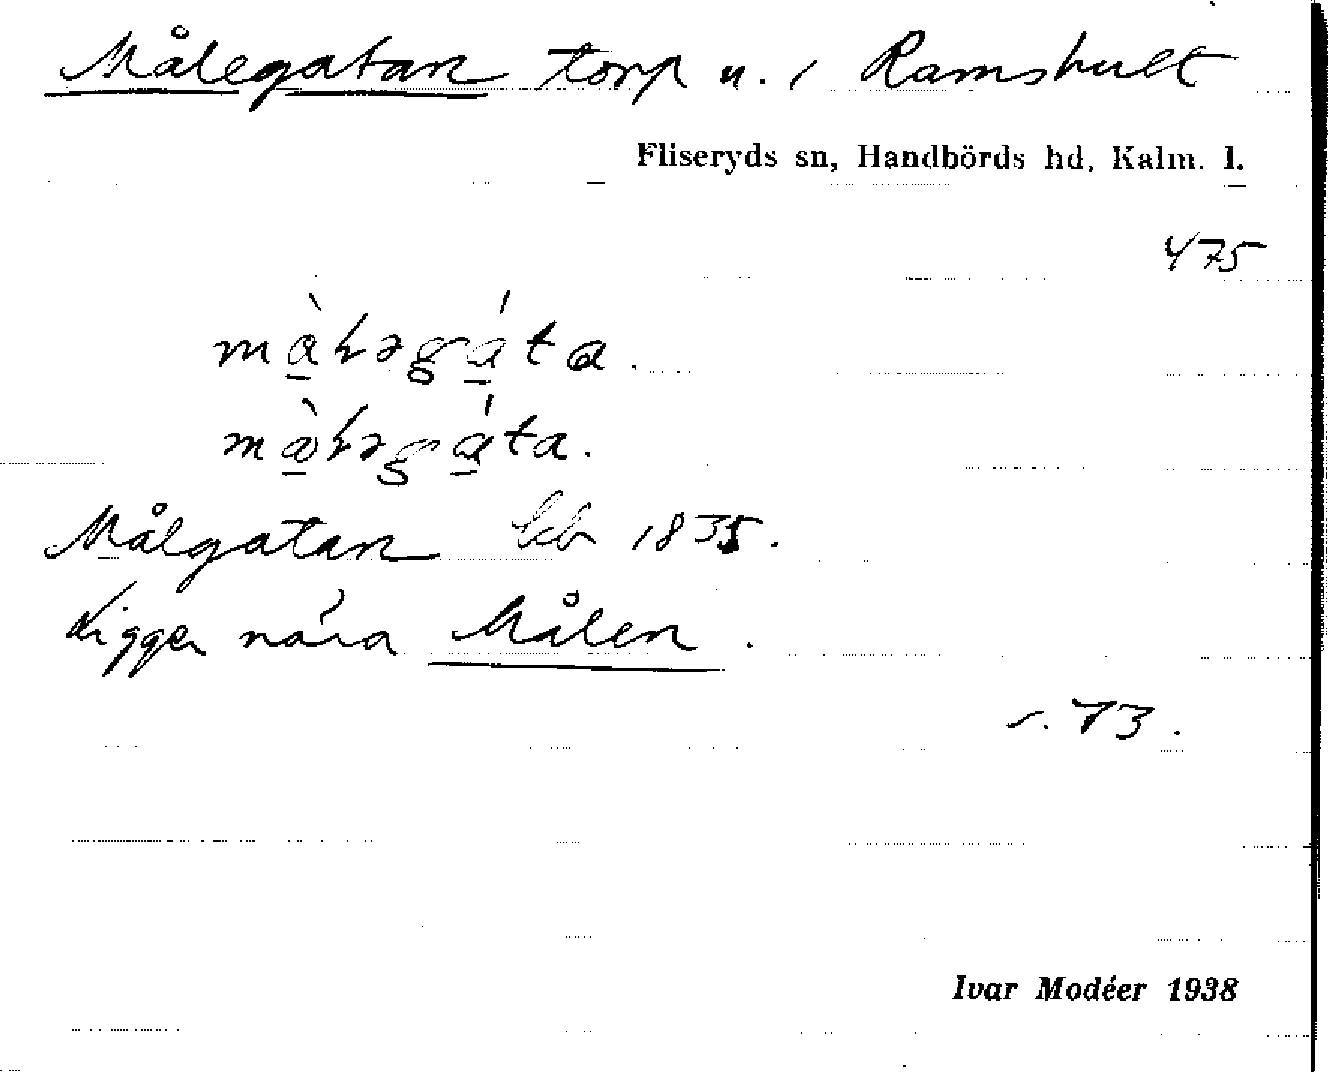 Målegatan torp u. / Ramshult
Fliseryds sn, Handbörds hd, Kalm. l.
475
Målgatan lb 1835.
Ligger nära Målen.
s. 73.
Ivar Modéer 1938